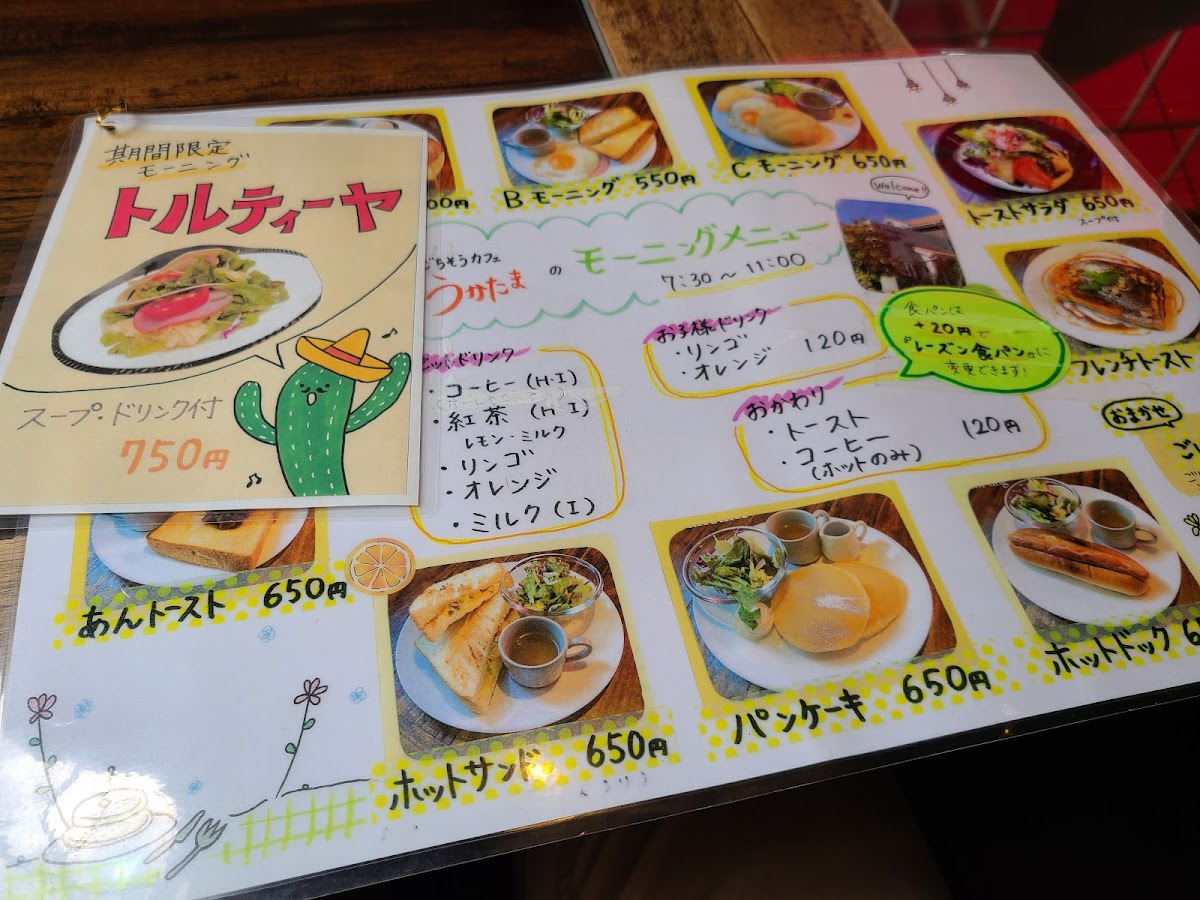 期間限定
モーニング
トルティーヤ
スープ・ドリンク付
750円
00円
Bモーニング 550円
Cモーニング 650円
Welcome!!
トーストサラダ 650円
スープ付
ごちそうカフェ
うかたまの
モーニングメニュー
7:30〜11:00
ドリンク
・コーヒー(H・I)
・紅茶(H・I)
レモン・ミルク
・リンゴ
・オレンジ
・ミルク(I)
お子様ドリンク
・リンゴ
・オレンジ
120円
おかわり
・トースト
・コーヒー
(ホットのみ)
120円
食パンは
+20円で
『レーズン食パン』に
変更できます!
フレンチトースト
おまかせ
あんトースト 650円
ホットサンド 650円
パンケーキ 650円
ホットドック